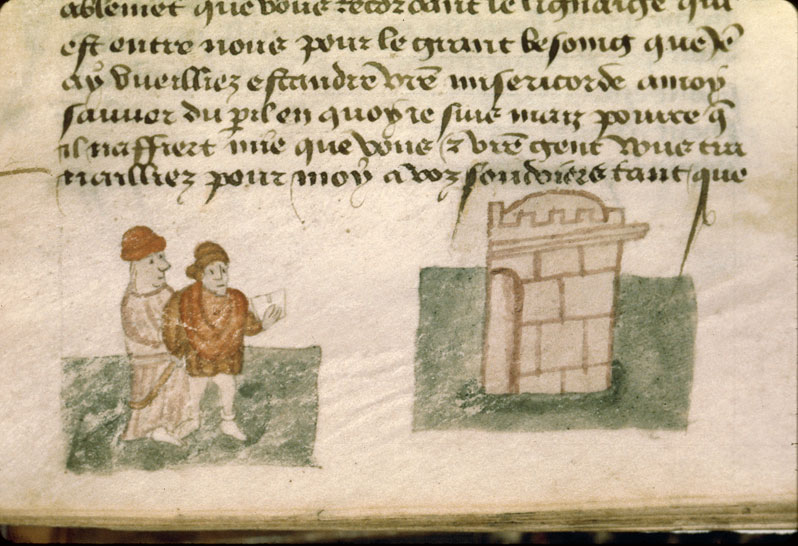 ablemēt que vous recordant le lignaige qui
est entre nous pour le grant besoing que Je
ay vueilliez estandre vr̄e misericorde a moy
sauuer du peril en quoy ie suis maiz pource q̄
il naffiert mie que vous & vr̄e gent vous tra
uailliez pour moy a voz souldoiers tant que